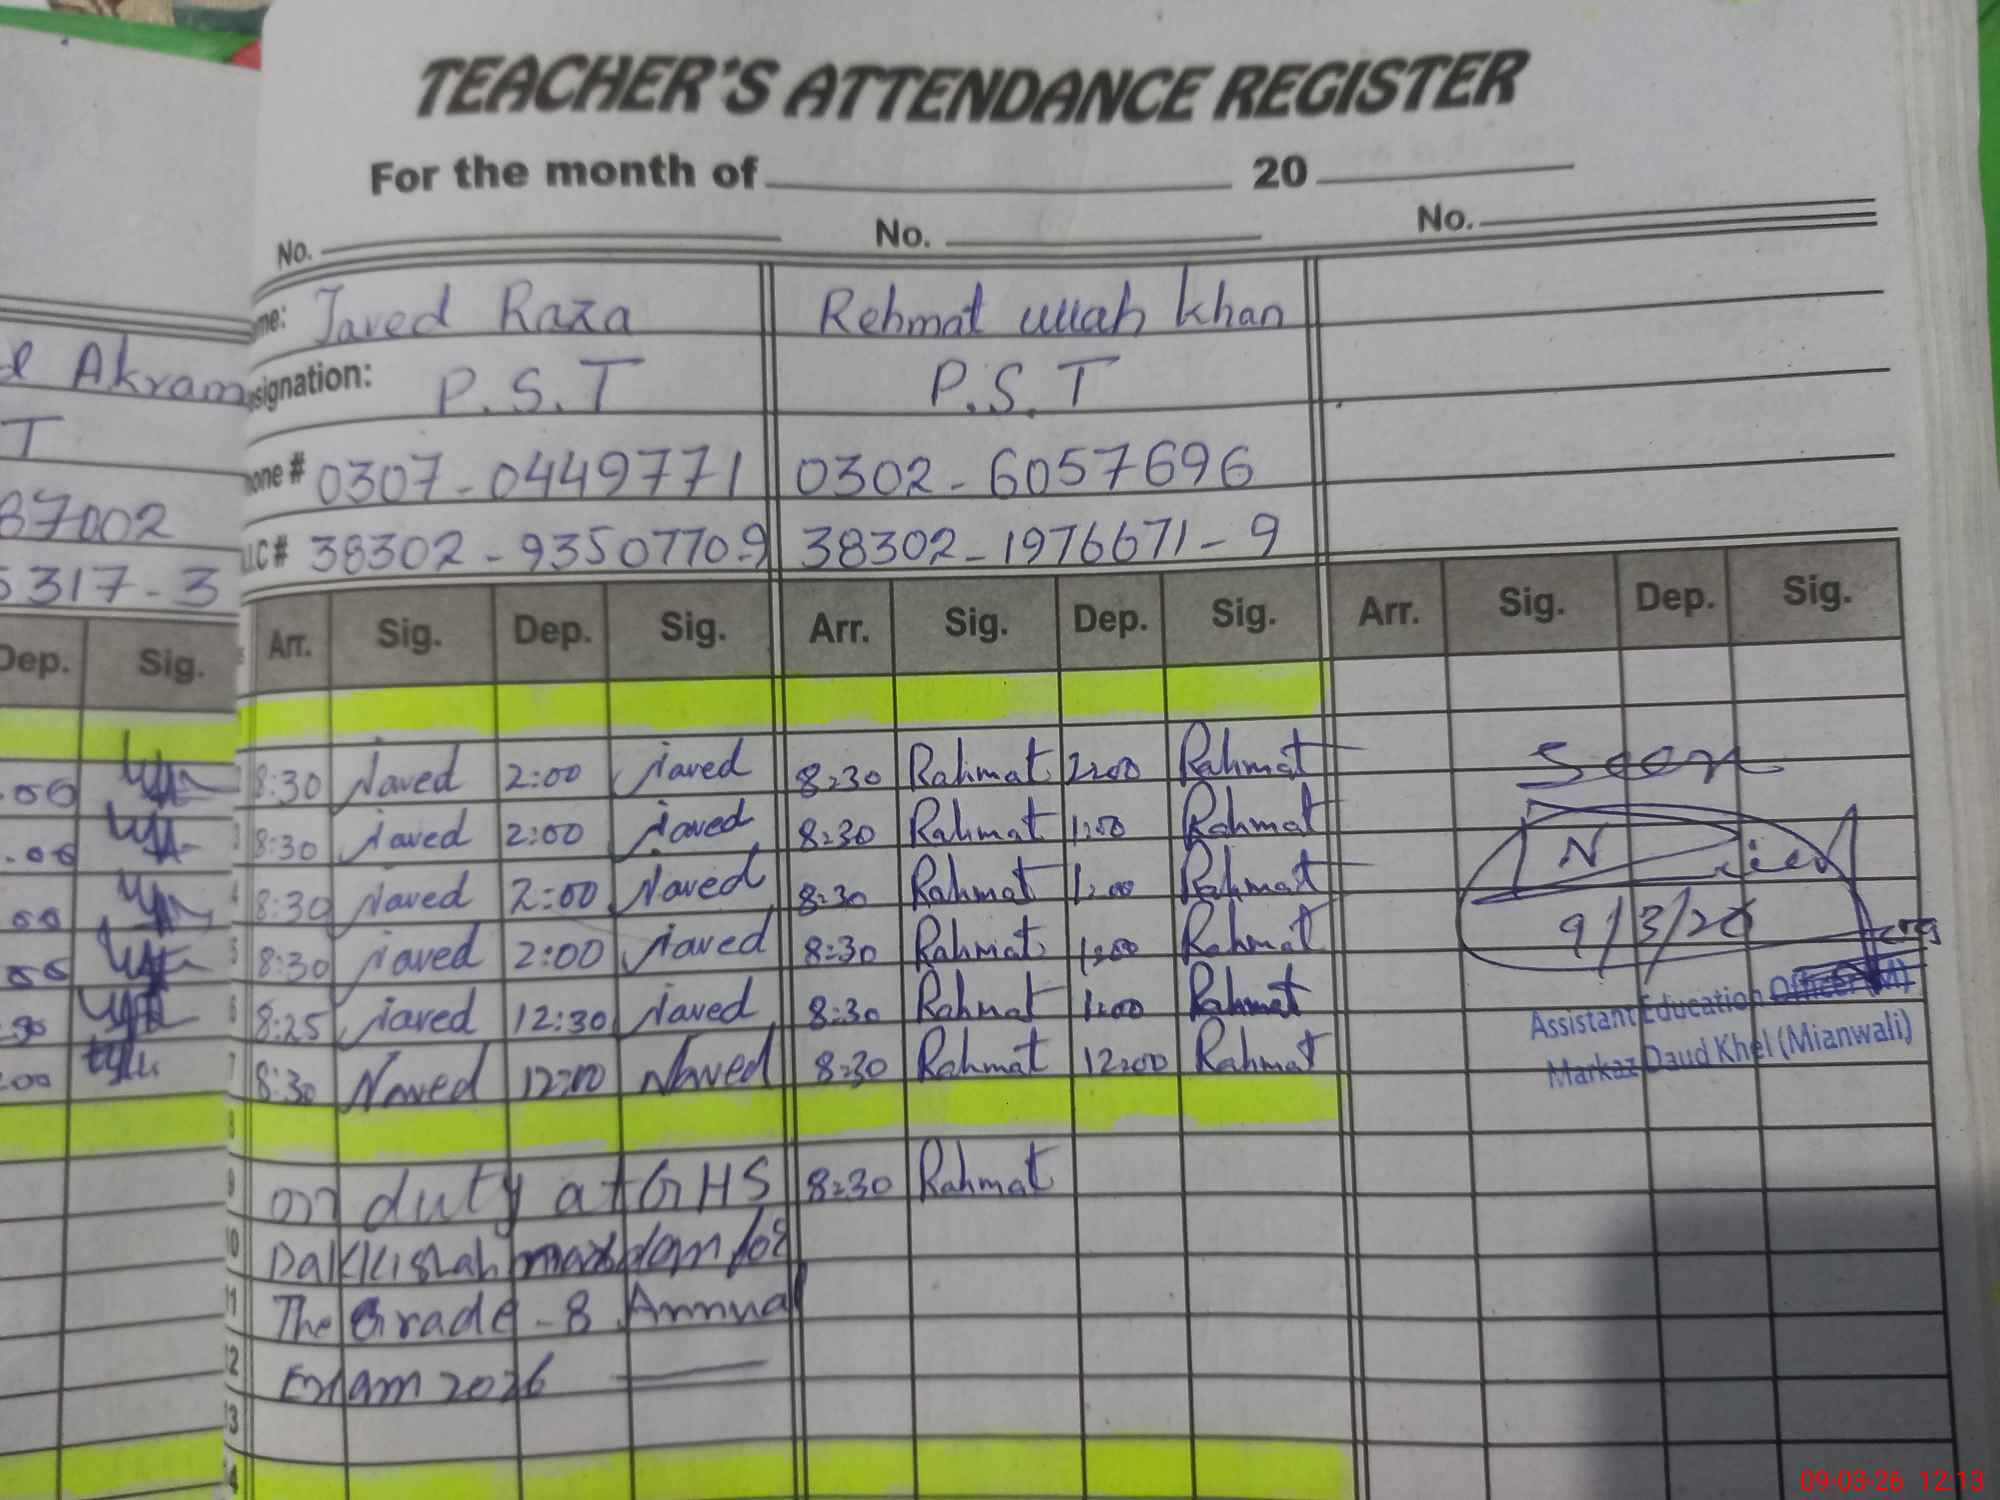 TEACHER'S ATTENDANCE REGISTER
For the month of 20
No. No. No.
me: Javed Raza Rehmat ullah khan
signation: P.S.T P.S.T
one # 0307-0449771 0302-6057696
I.C # 38302-9350770-9 38302-1976671-9
Akram
T
87002
5317-3
Dep. Sig. Arr. Sig. Dep. Sig. Arr. Sig. Dep. Sig. Arr. Sig. Dep. Sig.
8:30 Javed 2:00 Javed 8:30 Rahmat 2:00 Rahmat Seen
3 8:30 Javed 2:00 Javed 8:30 Rahmat 1:00 Rahmat
4 8:30 Javed 2:00 Javed 8:30 Rahmat 1:00 Rahmat
5 8:30 Javed 2:00 Javed 8:30 Rahmat 1:00 Rahmat 9/3/26
6 8:25 Javed 12:30 Javed 8:30 Rahmat 1:00 Rahmat
Assistant Education Officer (M)
7 8:30 Javed 12:00 Javed 8:30 Rahmat 12:00 Rahmat
Markaz Daud Khel (Mianwali)
8
9 on duty at GHS 8:30 Rahmat
10 for
11 The Grade-8 Annual
12 Exam 2026
13
14
09-03-26 12:13